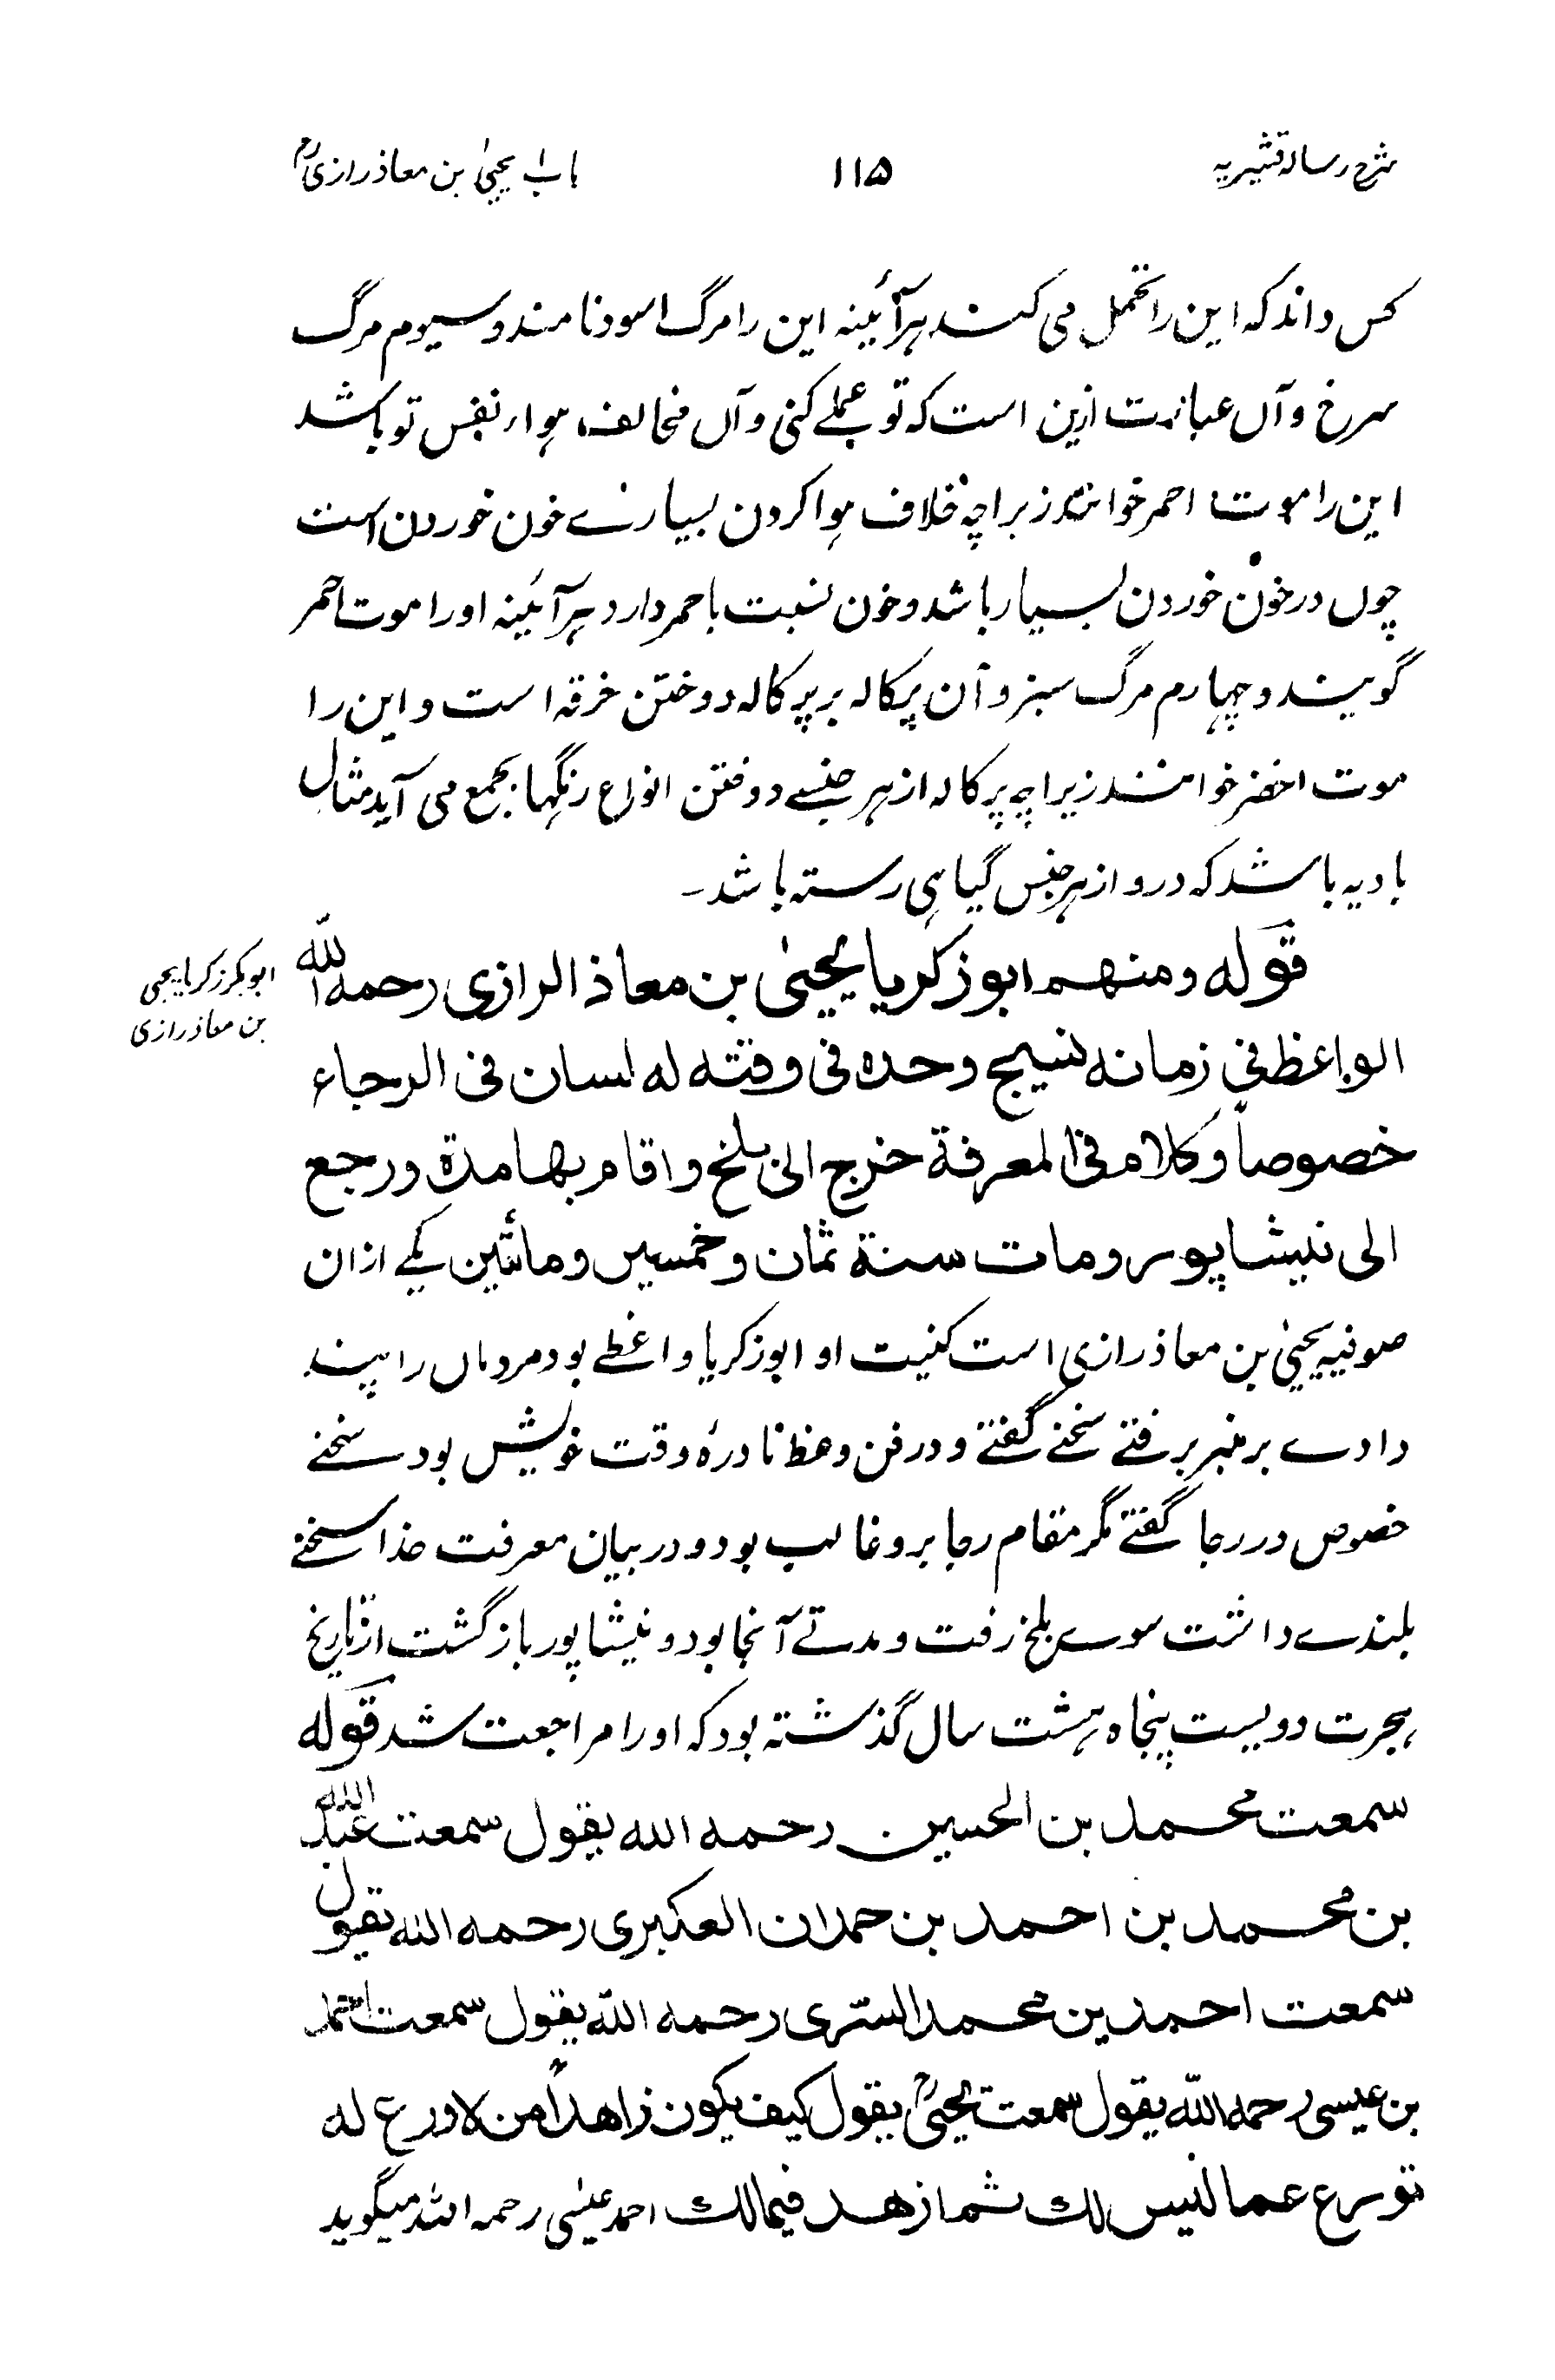 شرح رسالہ قشیریہ
۱۱۵
باب یحییٰ بن معاذ رازیؒ
کس داند کہ این را تحمل می کند ہر آئینہ این را مرگ اسود نامند و سیوم مرگ
سرخ و آں عبارت ازین است کہ تو عملے کنی و آں مخالف ہواء نفس تو باشد
این را موت احمر خوانند زیراچہ خلاف ہوا کردن بسیارے خون خوردن است
چوں در خون خوردن بسیار باشد و خون نسبت با حمر دارد ہر آئینہ او را موت احمر
گویند و چہارم مرگ سبز و آن پرکالہ بر پرکالہ دوختن خرقہ است و این را
موت اخضر خوانند زیراچہ پرکالہ از ہر جنسے دوختن انواع رنگہا بجمع می آید مثال
بادیہ باشد کہ درو از ہر جنس گیاہی رستہ باشد۔
قوله ومنهم ابو زكريا يحيىٰ بن معاذ الرازى رحمه الله
ابو بکر زکریا یحیی
بن معاذ رازی
الواعظ فى زمانه نسيج وحده فى وقته له لسان فى الرجاء
خصوصاً وكلام فى المعرفة خرج الى بلخ واقام بها مدة ورجع
الى نيشاپور ومات سنة ثمان وخمسين ومائتين یکے ازان
صوفیہ یحییٰ بن معاذ رازی است کنیت او ابو زکریا واعظے بود مردماں را پند
دادے بر منبر برفتے سخنے گفتے و در فن وعظ نادرۂ وقت خویش بود سخنے
خصوص در رجا گفتے مگر مقام رجا برو غالب بود و در بیان معرفت خدا سخنے
بلندے داشت سوے بلخ رفت و مدتے آنجا بود و نیشاپور باز گشت از تاریخ
ہجرت دویست پنجاہ ہشت سال گذشتہ بود کہ او را مراجعت شد قوله
سمعت محمد بن الحسين رحمه الله يقول سمعت عبد الله
بن محمد بن احمد بن حمدان العكبرى رحمه الله يقول
سمعت احمد بن محمد السّرى رحمه الله يقول سمعت احمد
بن عيسى رحمه الله يقول سمعت يحيىؒ يقول كيف يكون زاهداً من لا ورع له
تورع عما ليس لك ثم ازهد فيما لك احمد عیسٰی رحمہ اللہ میگوید